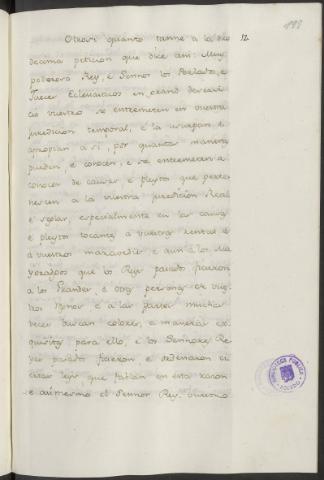 Otrosi quanto tanne a la duo
12.
decima peticion que dize asi: Muy
poderoso Rey, e Sennor los Perlados, e
Jueces Eclesiasticos en grand deservi
cio vuestro se entremeten en vuestra
juredicion temporal, e la usurpan e
apropian a si, por quantas maneras
pueden, e conocen, e se entremeten a
conocer de causas e pleytos que perte
necen a la vuestra juredicion Real
e seglar, especialmente en las causas
e pleytos tocantes a vuestras rentas e
a vuestros maravedis e aun a los Ma
yorazgos que los Reys pasados fizieron
a los Grandes e otras personas
e a las partes muchas
veces buscan colores, e maneras ex
quisitas para ello, e los Sennores Re
yes pasados fizieron e ordenaron
ciertas leys, que fablan en esta razon
e ansimesmo el Sennor Rey
BIBLIOTECA PUBLICA
TOLEDO